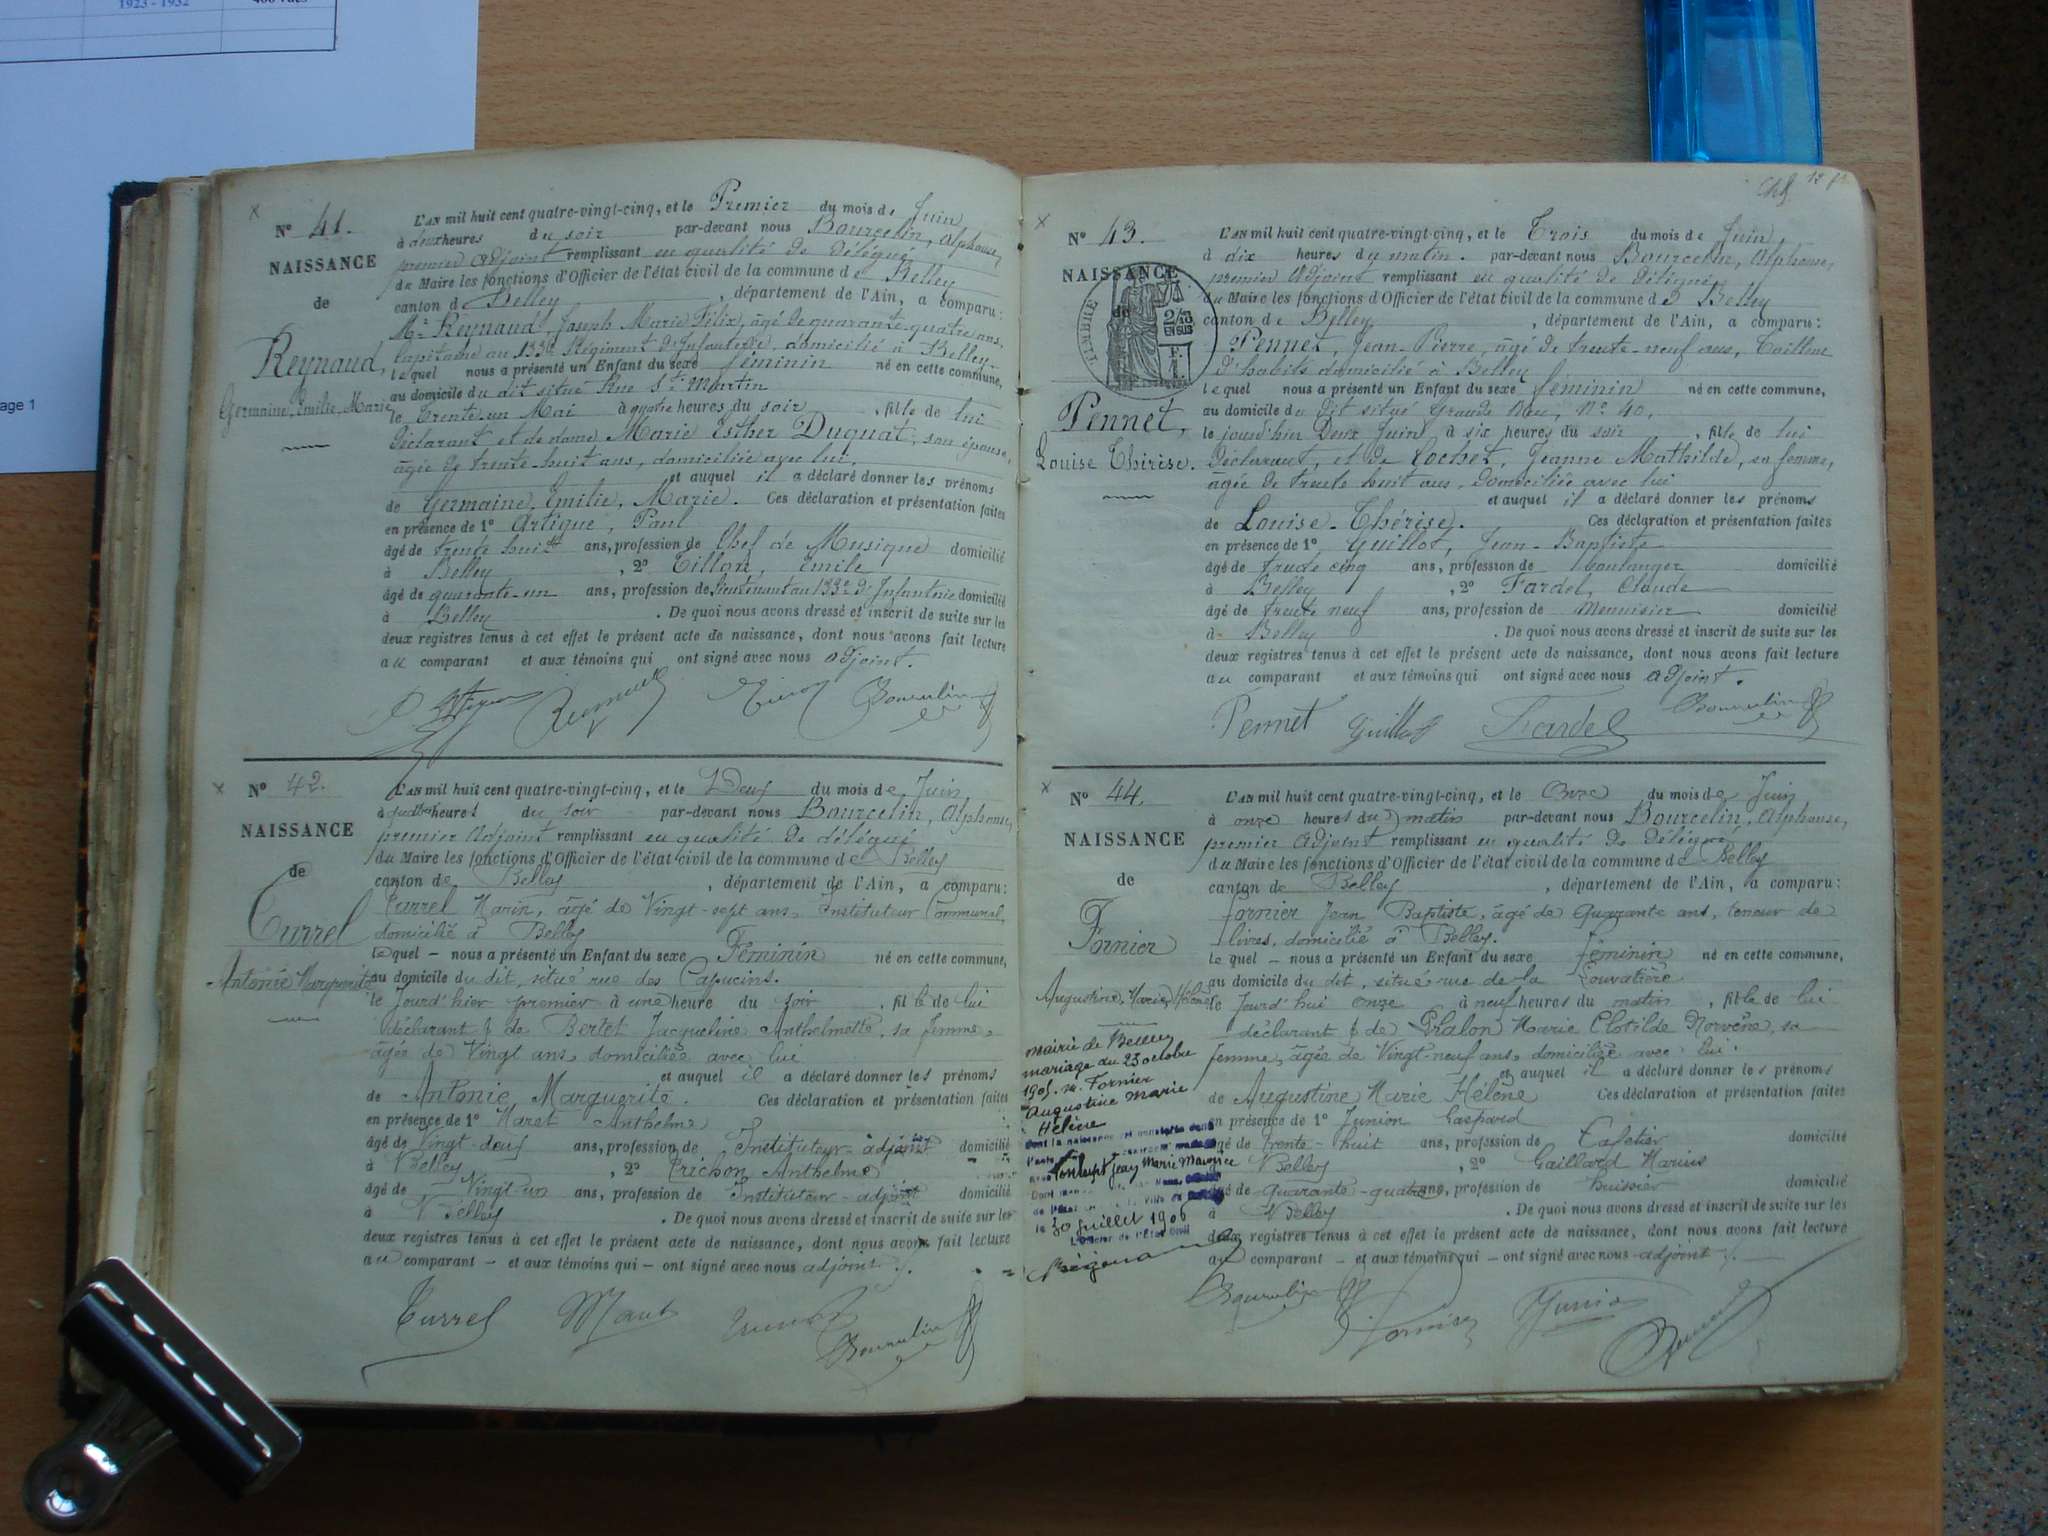 1923 - 1932
age 1
N° 41.
NAISSANCE
de
Reynaud,
Germaine, Emilie, Marie
L'AN mil huit cent quatre-vingt-cinq, et le Premier du mois de Juin
à deux heures du soir par-devant nous Bourcelin, Alphonse,
premier Adjoint remplissant en qualité de délégué
du Maire les fonctions d'Officier de l'état civil de la commune de Belley
canton de Belley, département de l'Ain, a comparu:
Mr Reynaud, Joseph Marie Félix, âgé de quarante-quatre ans,
Capitaine au 133e Régiment d'Infanterie, domicilié à Belley,
lequel nous a présenté un Enfant du sexe féminin né en cette commune,
au domicile du dit situé Rue St Martin
le trente-un Mai à quatre heures du soir, fille de lui
déclarant et de dame Marie Esther Duquat, son épouse,
âgée de trente-huit ans, domiciliée avec lui,
et auquel il a déclaré donner les prénoms
de Germaine, Emilie, Marie. Ces déclaration et présentation faites
en présence de 1° Artique, Paul
âgé de trente huit ans, profession de Chef de Musique domicilié
à Belley, 2° Tillon, Emile
âgé de quarante-un ans, profession de lieutenant au 133e d'Infanterie domicilié
à Belley. De quoi nous avons dressé et inscrit de suite sur les
deux registres tenus à cet effet le présent acte de naissance, dont nous avons fait lecture
au comparant et aux témoins qui ont signé avec nous adjoint.
Reynaud Bourcelin
N° 42.
NAISSANCE
de
Currel
Antonie Marguerite
L'AN mil huit cent quatre-vingt-cinq, et le Deux du mois de Juin,
à quatre heures du soir par-devant nous Bourcelin, Alphonse,
premier Adjoint remplissant en qualité de délégué
du Maire les fonctions d'Officier de l'état civil de la commune de Belley
canton de Belley, département de l'Ain, a comparu:
Currel Marin, âgé de Vingt-sept ans, Instituteur Communal,
domicilié à Belley
lequel - nous a présenté un Enfant du sexe Féminin né en cette commune,
au domicile du dit, situé rue des Capucins.
le Jourd'hier premier à une heure du soir, fille de lui
déclarant & de Bertet Jacqueline Anthelmette, sa femme,
âgée de Vingt ans, domiciliée avec lui
et auquel il a déclaré donner les prénoms
de Antonie Marguerite. Ces déclaration et présentation faites
en présence de 1° Maret Anthelme
âgé de Vingt deux ans, profession de Instituteur-adjoint domicilié
à Belley, 2° Anthelme
âgé de Vingt un ans, profession de Instituteur-adjoint domicilié
à Belley. De quoi nous avons dressé et inscrit de suite sur les
deux registres tenus à cet effet le présent acte de naissance, dont nous avons fait lecture
au comparant - et aux témoins qui - ont signé avec nous adjoint.
Currel Maret
Bourcelin
12
N° 43.
NAISSANCE
de
TIMBRE
2/10
EN SUS
F.
1.
Pennet,
Louise Thérèse.
L'AN mil huit cent quatre-vingt-cinq, et le Trois du mois de Juin
à dix heures du matin. par-devant nous Bourcelin, Alphonse,
premier Adjoint remplissant en qualité de délégué
du Maire les fonctions d'Officier de l'état civil de la commune de Belley
canton de Belley, département de l'Ain, a comparu:
Pennet, Jean-Pierre, âgé de trente-neuf ans, Tailleur
d'habits domicilié à Belley
lequel nous a présenté un Enfant du sexe féminin né en cette commune,
au domicile du dit situé Grande Rue, N° 40,
le jourd'hier Deux Juin à six heures du soir, fille de lui
déclarant, et de Cochet, Jeanne Mathilde, sa femme,
âgée de trente huit ans, domiciliée avec lui
et auquel il a déclaré donner les prénoms
de Louise-Thérèse. Ces déclaration et présentation faites
en présence de 1° Guillot, Jean-Baptiste
âgé de trente cinq ans, profession de boulanger domicilié
à Belley, 2° Fardel, Claude
âgé de trente neuf ans, profession de Menuisier domicilié
à Belley. De quoi nous avons dressé et inscrit de suite sur les
deux registres tenus à cet effet le présent acte de naissance, dont nous avons fait lecture
au comparant et aux témoins qui ont signé avec nous adjoint.
Pennet Guillot Fardel Bourcelin
N° 44.
NAISSANCE
de
Fornier
Augustine, Marie, Hélène
mairie de Belley
mariage du 23 octobre
1905. M. Fornier
Augustine Marie
Hélène
dont la naissance est constatée dans
Jean Marie Maurice
le 30 juillet 1906
L'Officier de l'État Civil
L'AN mil huit cent quatre-vingt-cinq, et le Onze du mois de Juin
à onze heures du matin par-devant nous Bourcelin, Alphonse,
premier Adjoint remplissant en qualité de délégué
du Maire les fonctions d'Officier de l'état civil de la commune de Belley
canton de Belley, département de l'Ain, a comparu:
Fornier Jean Baptiste, âgé de Quarante ans, teneur de
livres, domicilié à Belley.
lequel - nous a présenté un Enfant du sexe féminin né en cette commune,
au domicile du dit, situé rue de la Louvatière
le Jourd'hui onze à neuf heures du matin, fille de lui
déclarant & de Marie Clotilde, sa
femme, âgée de Vingt-neuf ans, domiciliée avec lui.
et auquel il a déclaré donner les prénoms
de Augustine Marie Hélène Ces déclaration et présentation faites
en présence de 1° Junion Gaspard
âgé de trente-huit ans, profession de Cafetier domicilié
à Belley, 2° Gaillard Marius
âgé de quarante-quatre ans, profession de huissier domicilié
à Belley. De quoi nous avons dressé et inscrit de suite sur les
deux registres tenus à cet effet le présent acte de naissance, dont nous avons fait lecture
au comparant - et aux témoins qui - ont signé avec nous adjoint.
Bourcelin Fornier Junion